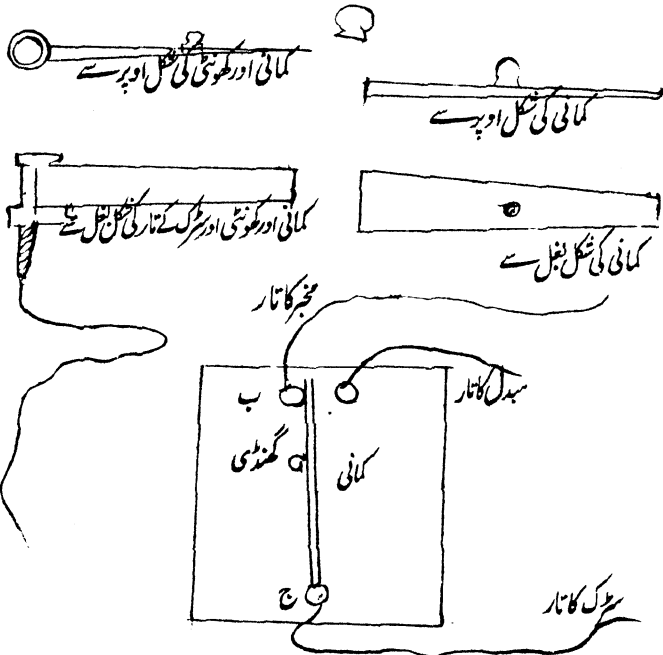 کمانی اور کھونٹی کی شکل اوپر سے
کمانی کی شکل اوپر سے
کمانی اور کھونٹی اور سڑک کے تار کی شکل بغل سے
کمانی کی شکل بغل سے
مخبر کا تار
مبدل کا تار
ب
گھنڈی
کمانی
ج
سڑک کا تار